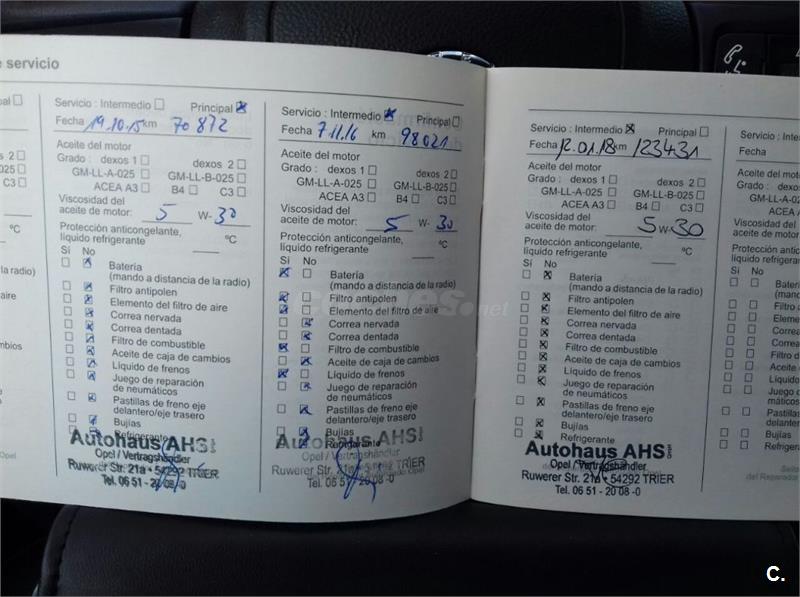 e servicio
al ☐
2 ☐
025 ☐
C3 ☐
°C
la radio)
aire
mbios
Opel
Servicio : Intermedio ☐ Principal ☒
Fecha 19.10.15 km 70 872
Aceite del motor
Grado : dexos 1 ☐ dexos 2 ☐
GM-LL-A-025 ☐ GM-LL-B-025 ☐
ACEA A3 ☐ B4 ☐ C3 ☐
Viscosidad del
aceite de motor: 5 W- 30
Protección anticongelante,
líquido refrigerante °C
Sí No
☐ ☒ Batería
(mando a distancia de la radio)
☐ ☒ Filtro antipolen
☐ ☒ Elemento del filtro de aire
☐ ☒ Correa nervada
☐ ☒ Correa dentada
☐ ☒ Filtro de combustible
☐ ☒ Aceite de caja de cambios
☐ ☒ Líquido de frenos
☐ ☒ Juego de reparación
de neumáticos
☐ ☒ Pastillas de freno eje
delantero/eje trasero
☐ ☒ Bujías
☐ ☒ Refrigerante
Autohaus AHS GmbH
Opel / Vertragshändler
Ruwerer Str. 21a • 54292 TRIER
Tel. 06 51 - 20 08 -0
Servicio : Intermedio ☒ Principal ☐
Fecha 7.11.16 km 98021
Aceite del motor
Grado : dexos 1 ☐ dexos 2 ☐
GM-LL-A-025 ☐ GM-LL-B-025 ☐
ACEA A3 ☐ B4 ☐ C3 ☐
Viscosidad del
aceite de motor: 5 W- 30
Protección anticongelante,
líquido refrigerante °C
Sí No
☒ ☐ Batería
(mando a distancia de la radio)
☒ ☐ Filtro antipolen
☒ ☐ Elemento del filtro de aire
☐ ☒ Correa nervada
☐ ☒ Correa dentada
☒ ☐ Filtro de combustible
☐ ☒ Aceite de caja de cambios
☒ ☐ Líquido de frenos
☐ ☒ Juego de reparación
de neumáticos
☐ ☒ Pastillas de freno eje
delantero/eje trasero
☐ ☒ Bujías
☐ ☒ Refrigerante
Autohaus AHS GmbH
Opel / Vertragshändler
Ruwerer Str. 21a • 54292 TRIER
Tel. 06 51 - 20 08 -0
Servicio : Intermedio ☒ Principal ☐
Fecha 12.01.18 km 123431
Aceite del motor
Grado : dexos 1 ☐ dexos 2 ☐
GM-LL-A-025 ☐ GM-LL-B-025 ☐
ACEA A3 ☐ B4 ☐ C3 ☐
Viscosidad del
aceite de motor: 5 W- 30
Protección anticongelante,
líquido refrigerante °C
Sí No
☐ ☒ Batería
(mando a distancia de la radio)
☐ ☒ Filtro antipolen
☐ ☒ Elemento del filtro de aire
☐ ☒ Correa nervada
☐ ☒ Correa dentada
☐ ☒ Filtro de combustible
☐ ☒ Aceite de caja de cambios
☐ ☒ Líquido de frenos
☐ ☒ Juego de reparación
de neumáticos
☐ ☒ Pastillas de freno eje
delantero/eje trasero
☐ ☒ Bujías
☐ ☒ Refrigerante
Autohaus AHS GmbH
Opel / Vertragshändler
Ruwerer Str. 21a • 54292 TRIER
Tel. 06 51 - 20 08 -0
Servicio : Intermedio
Fecha
Aceite del motor
Grado : dexos 1
GM-LL-A-025
ACEA A3
Viscosidad del
aceite de motor:
Protección anticongelante,
líquido refrigerante
Sí No
☐ ☐ Batería
(mando a
☐ ☐ Filtro an
☐ ☐ Elemento
☐ ☐ Correa n
☐ ☐ Correa d
☐ ☐ Filtro de
☐ ☐ Aceite de
☐ ☐ Líquido d
☐ ☐ Juego de
máticos
☐ ☐ Pastillas
delantero
☐ ☐ Bujías
☐ ☐ Refrigera
Sello
del Reparador
coches.net
C.